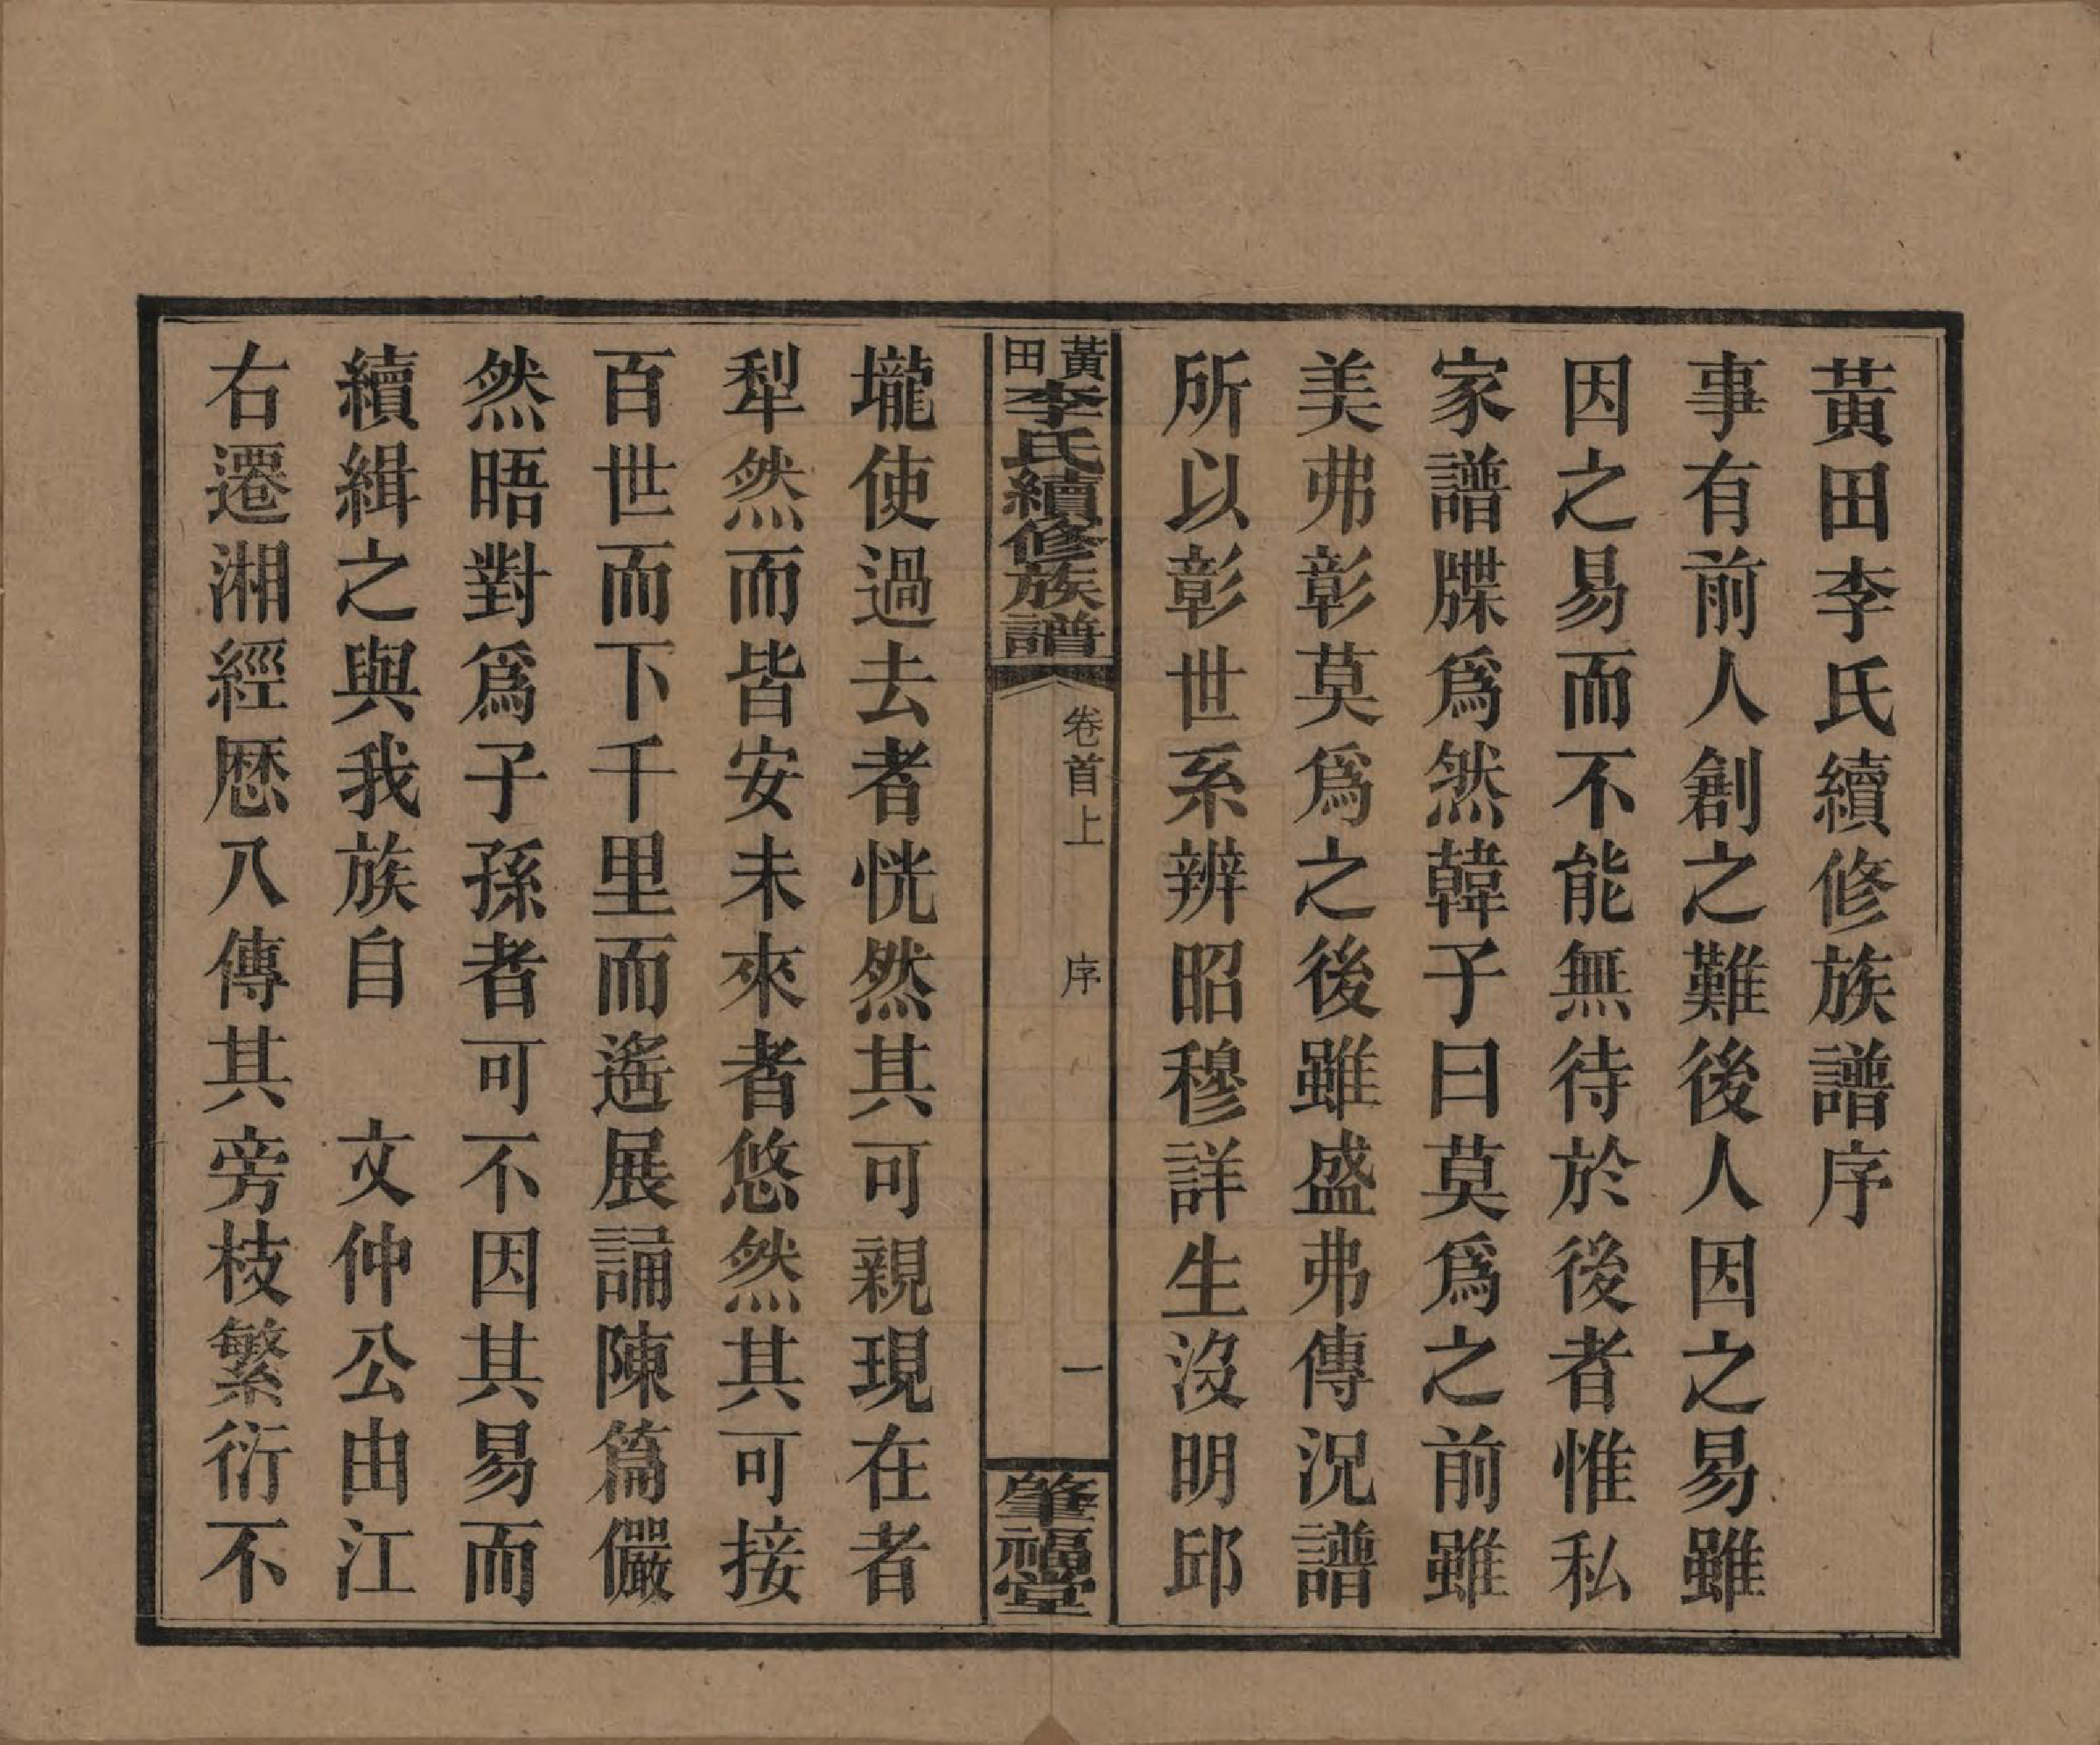 黃田李氏續修族譜序
事有前人創之難後人因之易雖
因之易而不能無待於後者惟私
家譜牒爲然韓子曰莫爲之前雖
美弗彰莫爲之後雖盛弗傳況譜
所以彰世系辨昭穆詳生沒明邱
黃田李氏續修族譜
卷首上 序 一
肇福堂
壠使過去者恍然其可親現在者
犁然而皆安未來者悠然其可接
百世而下千里而遙展誦陳篇儼
然晤對爲子孫者可不因其易而
續緝之與我族自 文仲公由江
右遷湘經歷八傳其旁枝繁衍不